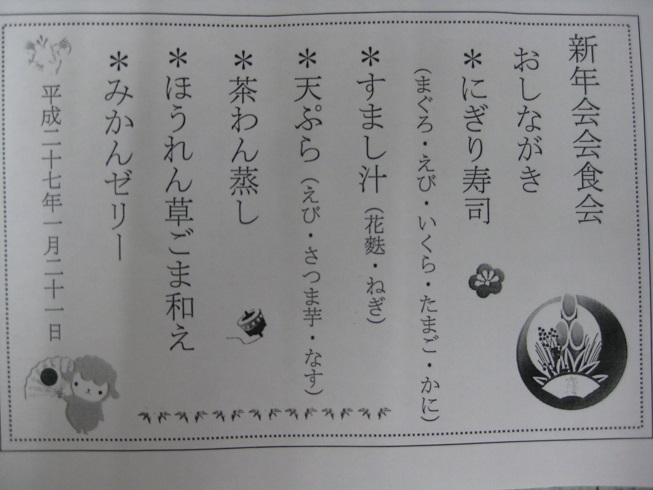 新年会会食会
おしながき
＊にぎり寿司
（まぐろ・えび・いくら・たまご・かに）
＊すまし汁（花麩・ねぎ）
＊天ぷら（えび・さつま芋・なす）
＊茶わん蒸し
＊ほうれん草ごま和え
＊みかんゼリー
平成二十七年一月二十一日